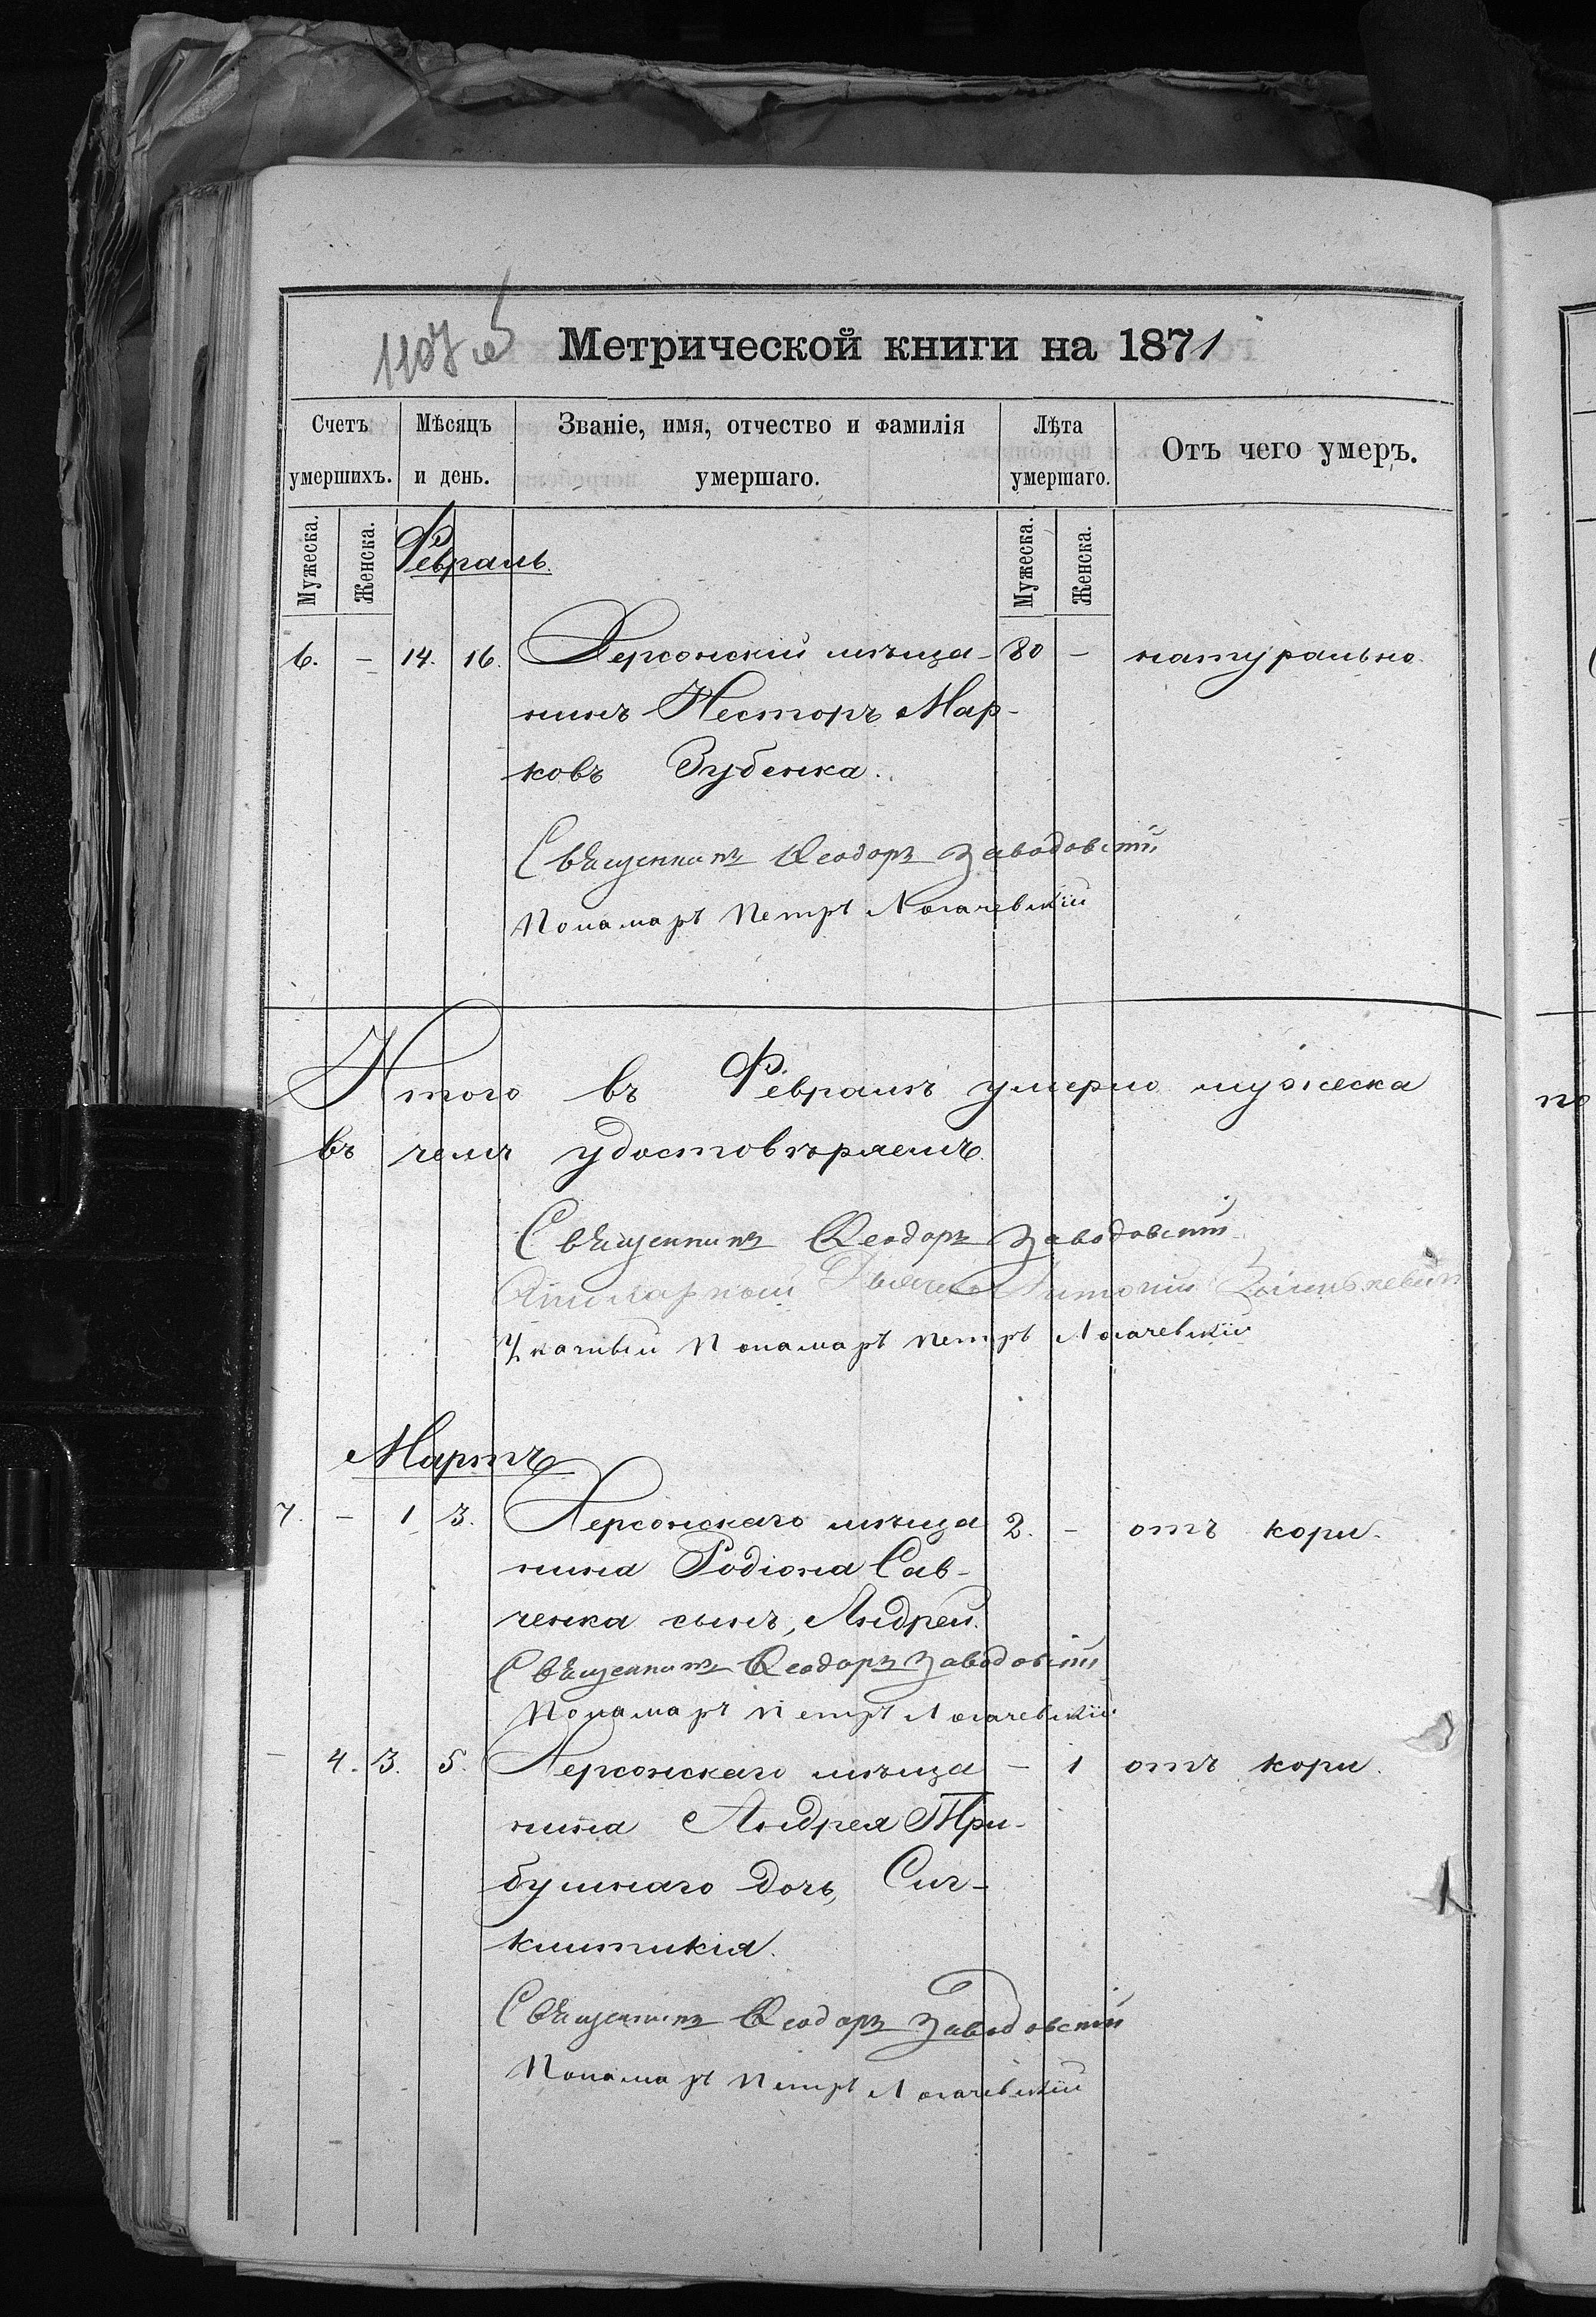 Метрической книги на 1871
Счетъ умершихъ. Мѣсяцъ и день. Званіе, имя, отчество и фамилія умершаго. Лѣта умершаго. Отъ чего умеръ.
Мужеска. Женска. Мужеска. Женска.
Февраль.
6. – 14. 16. Херсонскій мѣща- 80 – натурально.
нинъ Несторъ Мар-
ковъ Зубенка.
Священникъ Ѳеодоръ Заводовскій
Понамарь Петръ Логачевскій
Итого въ Февралѣ умерло мужеска
въ чемъ удостовѣряемъ.
Священникъ Ѳеодоръ Заводовскій
Антоній
Указный Понамарь Петръ Логачевскій
Мартъ
7. – 1 3. Херсонскаго мѣща 2. – отъ кори.
нина Родіона Сав-
ченка сынъ, Андрей.
Священникъ Ѳеодоръ Заводовскій
Понамарь Петръ Логачевскій
– 4. 3. 5. Херсонскаго мѣща – 1 отъ кори.
нина Андрея Три-
бушнаго дочь, Сиг-
климикія.
Священникъ Ѳеодоръ Заводовскій
Понамарь Петръ Логачевскій